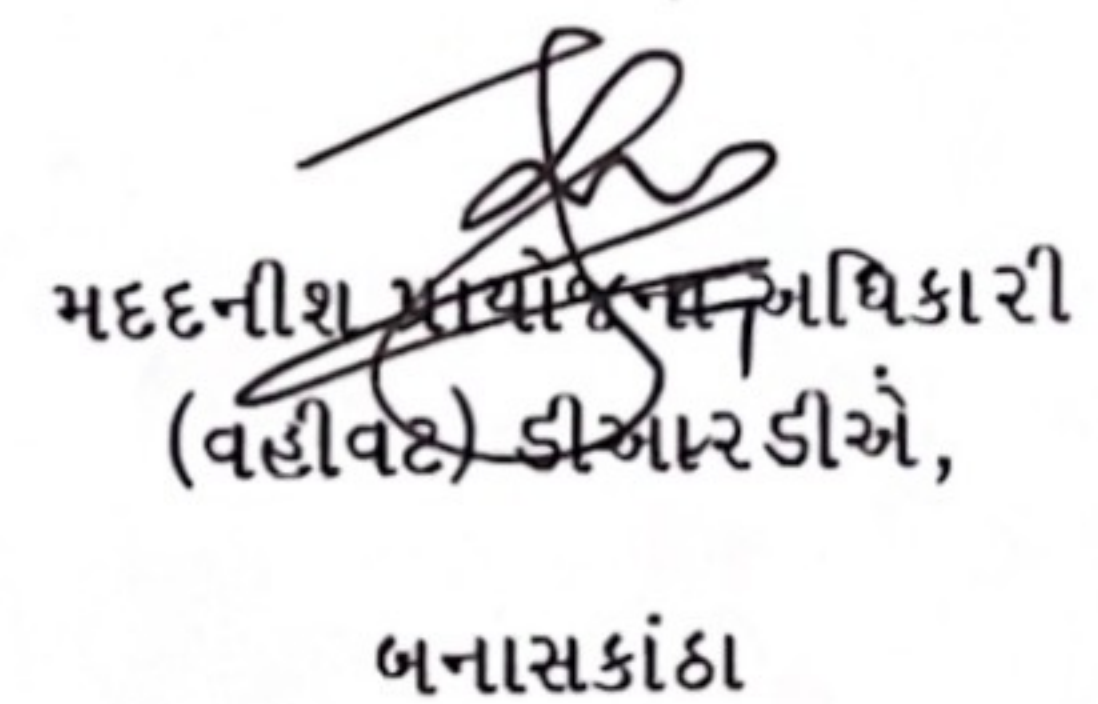 મદદનીશ પ્રાયોજના અધિકારી
(વહીવટ) ડીઆરડીએ,
બનાસકાંઠા